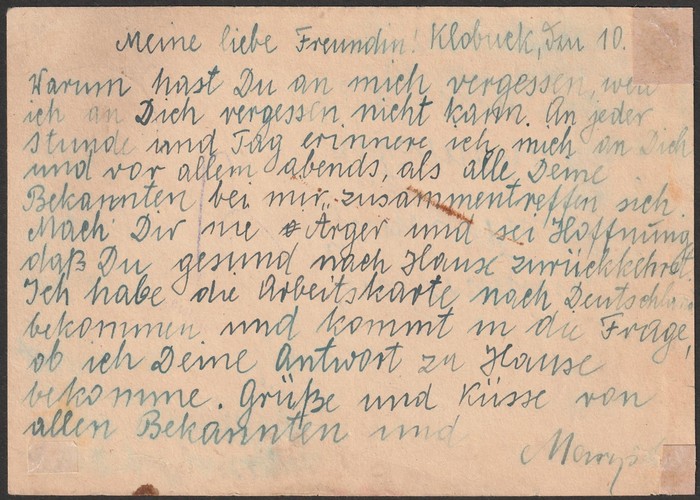 Meine liebe Freundin! Klobuck, den 10.
Warum hast Du an mich vergessen, weil
ich an Dich vergessen nicht kann. An jeder
Stunde und Tag erinnere ich mich an Dich
und vor allem abends, als alle Deine
Bekannten bei mir zusammentreffen sich.
Mach Dir nie Ärger und sei Hoffnung
daß Du gesund nach Hause zurückkehrst
Ich habe die Arbeitskarte nach
bekommen und kommt in die Frage,
ob ich Deine Antwort zu Hause
bekomme. Grüße und Küsse von
allen Bekannten und